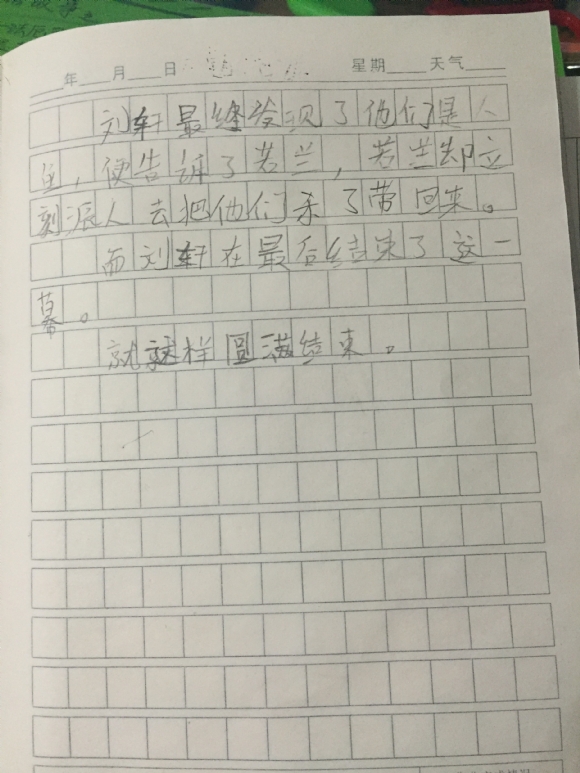 年 月 日 星期 天气
刘轩最终发现了他们是人
鱼，便告诉了若兰，若兰却立
刻派人去把他们杀了带回来。
而刘轩在最后结束了这一
幕。
就这样圆满结束。